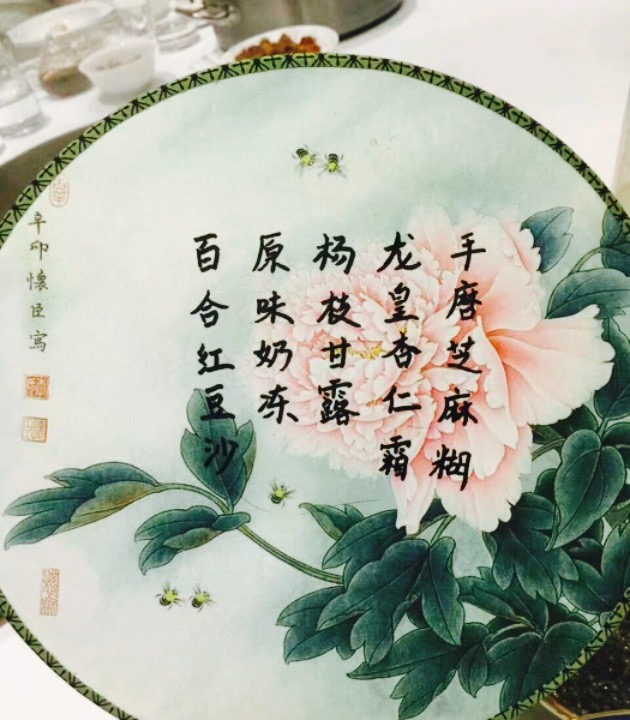 手磨芝麻糊
龙皇杏仁霜
杨枝甘露
原味奶冻
百合红豆沙
辛卯懐臣寫